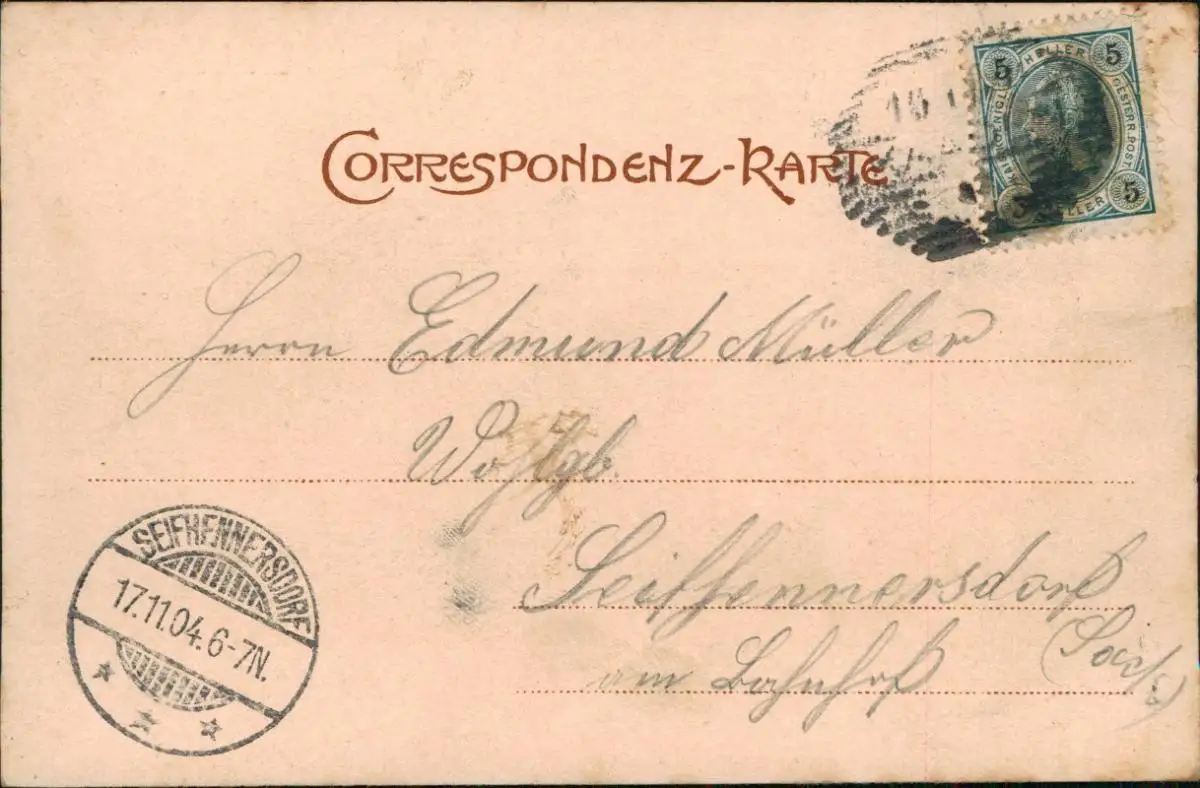 CORRESPONDENZ-KARTE
5 HELLER 5
KAIS. KOENIGL. OESTERR. POST
5 HELLER 5
Herrn Edmund Müller
Wohlgb.
Seifhennersdorf
am Bahnhof (Sachs.)
SEIFHENNERSDORF
17.11.04. 6-7N.